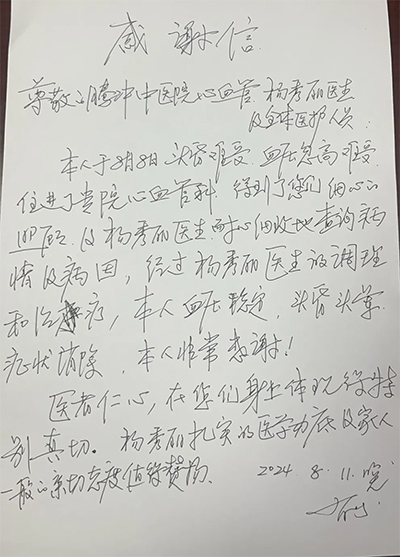 感谢信
尊敬的腾冲中医院心血管 杨秀丽医生
及全体医护人员:
本人于8月8日头昏难受 血压忽高难受
住进了贵院心血管科. 得到了您们细心的
照顾. 及杨秀丽医生耐心细致地查询病
情及病因, 经过杨秀丽医生的调理
和治疗, 本人血压稳定, 头昏头晕
症状消除, 本人非常感谢!
医者仁心, 在您们身上体现得特
别真切. 杨秀丽扎实的医学功底及家人
一般的亲切态度值得赞扬.
2024. 8. 11. 晚